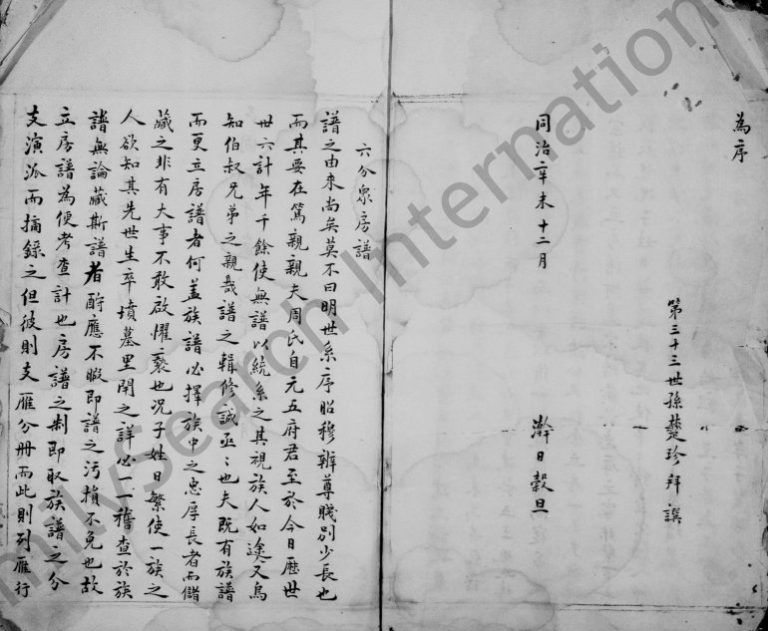 為序
第三十三世孫楚珍拜譔
同治辛未十二月　澣日穀旦
六分衆房譜
譜之由來尚矣莫不曰明世系序昭穆辨尊賤别少長也
而其要在篤親親夫周氏自元五府君至於今日歷世
世六計年千餘使無譜以統系之其視族人如途又烏
知伯叔兄弟之親哉譜之輯修誠亟〻也夫既有族譜
而更立房譜者何盖族譜必擇族中之忠厚長者而儲
藏之非有大事不敢啟懼褻也况子姓日繁使一族之
人欲知其先世生卒墳墓里閈之詳必一一稽查於族
譜無論藏斯譜者酧應不暇即譜之污損不免也故
立房譜為便考查計也房譜之制即取族譜之分
支演派而摘錄之但彼則支雁分册而此則列雁行
FamilySearch International